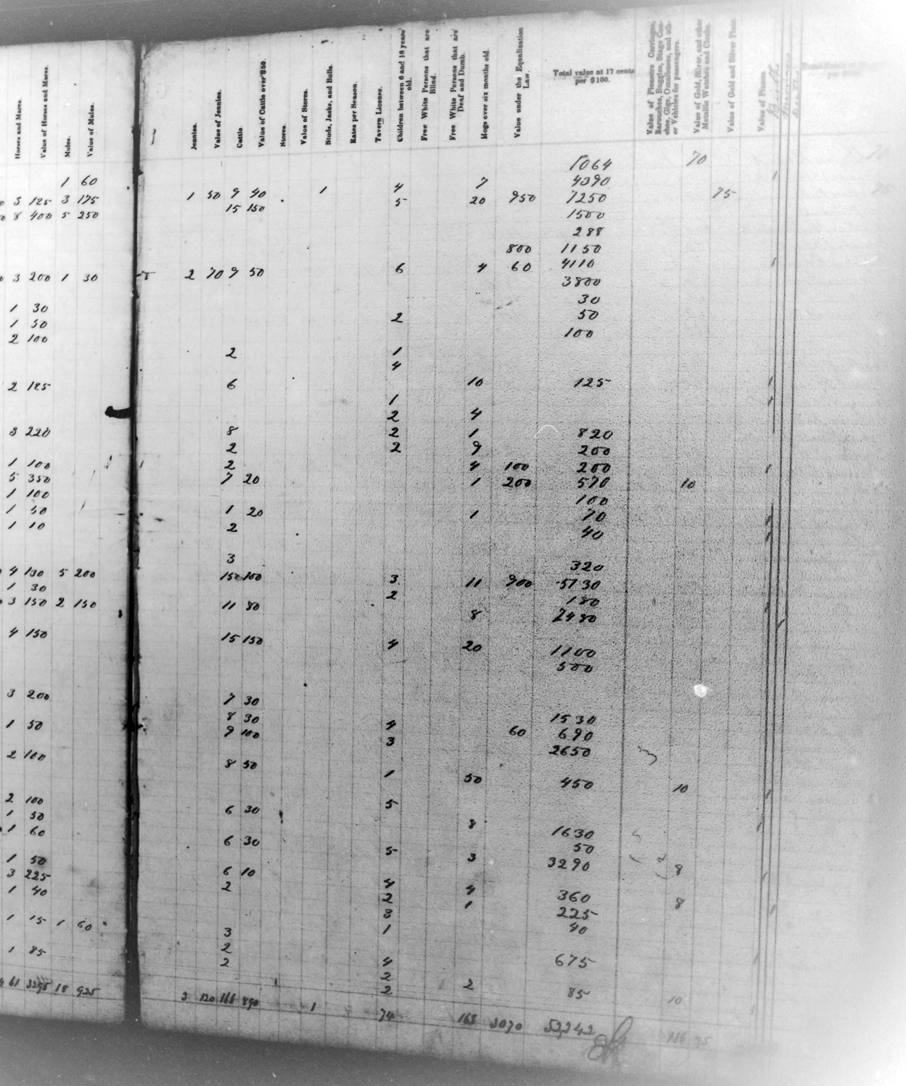 Horses and Mares.
Value of Horses and Mares.
Mules.
Value of Mules.
Jennies.
Value of Jennies.
Cattle.
Value of Cattle over $50.
Stores.
Value of Stores.
Studs, Jacks, and Bulls.
Rates per Season.
Tavern License.
Children between 6 and 18 years old.
Free White Persons that are Blind.
Free White Persons that are Deaf and Dumb.
Hogs over six months old.
Value under the Equalization Law.
Total value at 17 cents per $100.
Value of Pleasure Carriages, Barouches, Buggies, Stage Coaches, Gigs, Omnibuses, and other Vehicles for passengers.
Value of Gold, Silver, and other Metallic Watches and Clocks.
Value of Gold and Silver Plate.
Value of Pianos.
1064 70
1 60 4 7 4390 1
3 125 3 175 1 50 9 40 1 5 20 950 7250 75
8 400 5 250 15 150 1500
288
800 1150
3 200 1 30 2 70 9 50 6 4 60 4110 1
3800
1 30 30
1 50 2 50
2 100 100
2 1
4
2 125 6 10 125 1
1 1
2 4
3 220 8 2 1 820
2 2 9 200
1 100 2 4 100 200 1
5 350 7 20 1 200 570 10
1 100 100
1 50 1 20 1 70 1
1 10 2 40 1
3 320
4 130 5 200 15 100 3 11 900 5730
1 30 2 180
3 150 2 150 11 80 8 2480
4 150 15 150 4 20 1100
500
3 200 7 30
8 30 1530
1 50 9 100 4 60 690
3 2650
2 100 8 50
1 50 450 10
2 100 5 1
1 50 6 30
1 60 8 1630 1
50
6 30 5 3 3290 8
1 50
3 225 6 10 4 4 1
1 40 2 2 1 360 8
8 225 1
1 15 1 60 3 1 40
2
1 85 2 4 675 1
2
2 2 85 10
61 18 935 3 120 166 890 1
74 163 3070 53242 116 75